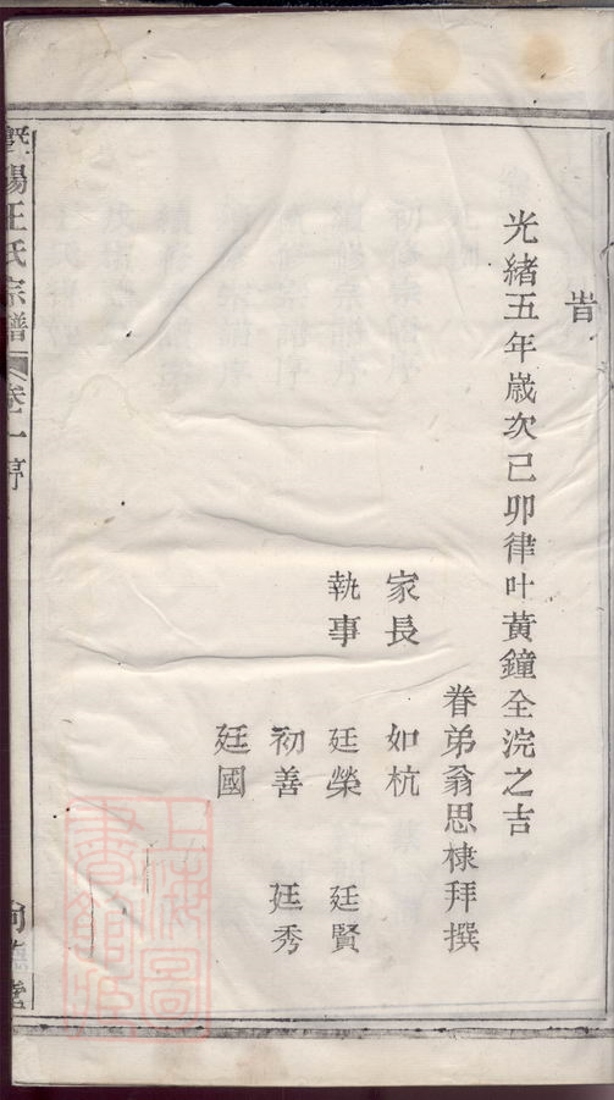 旹
光緒五年歲次己卯律叶黃鐘全浣之吉
眷弟翁思棣拜撰
家長 如杭
執事 廷榮 廷賢
初善 廷秀
廷國
暨陽王氏宗譜 卷一 序
上海圖書館藏